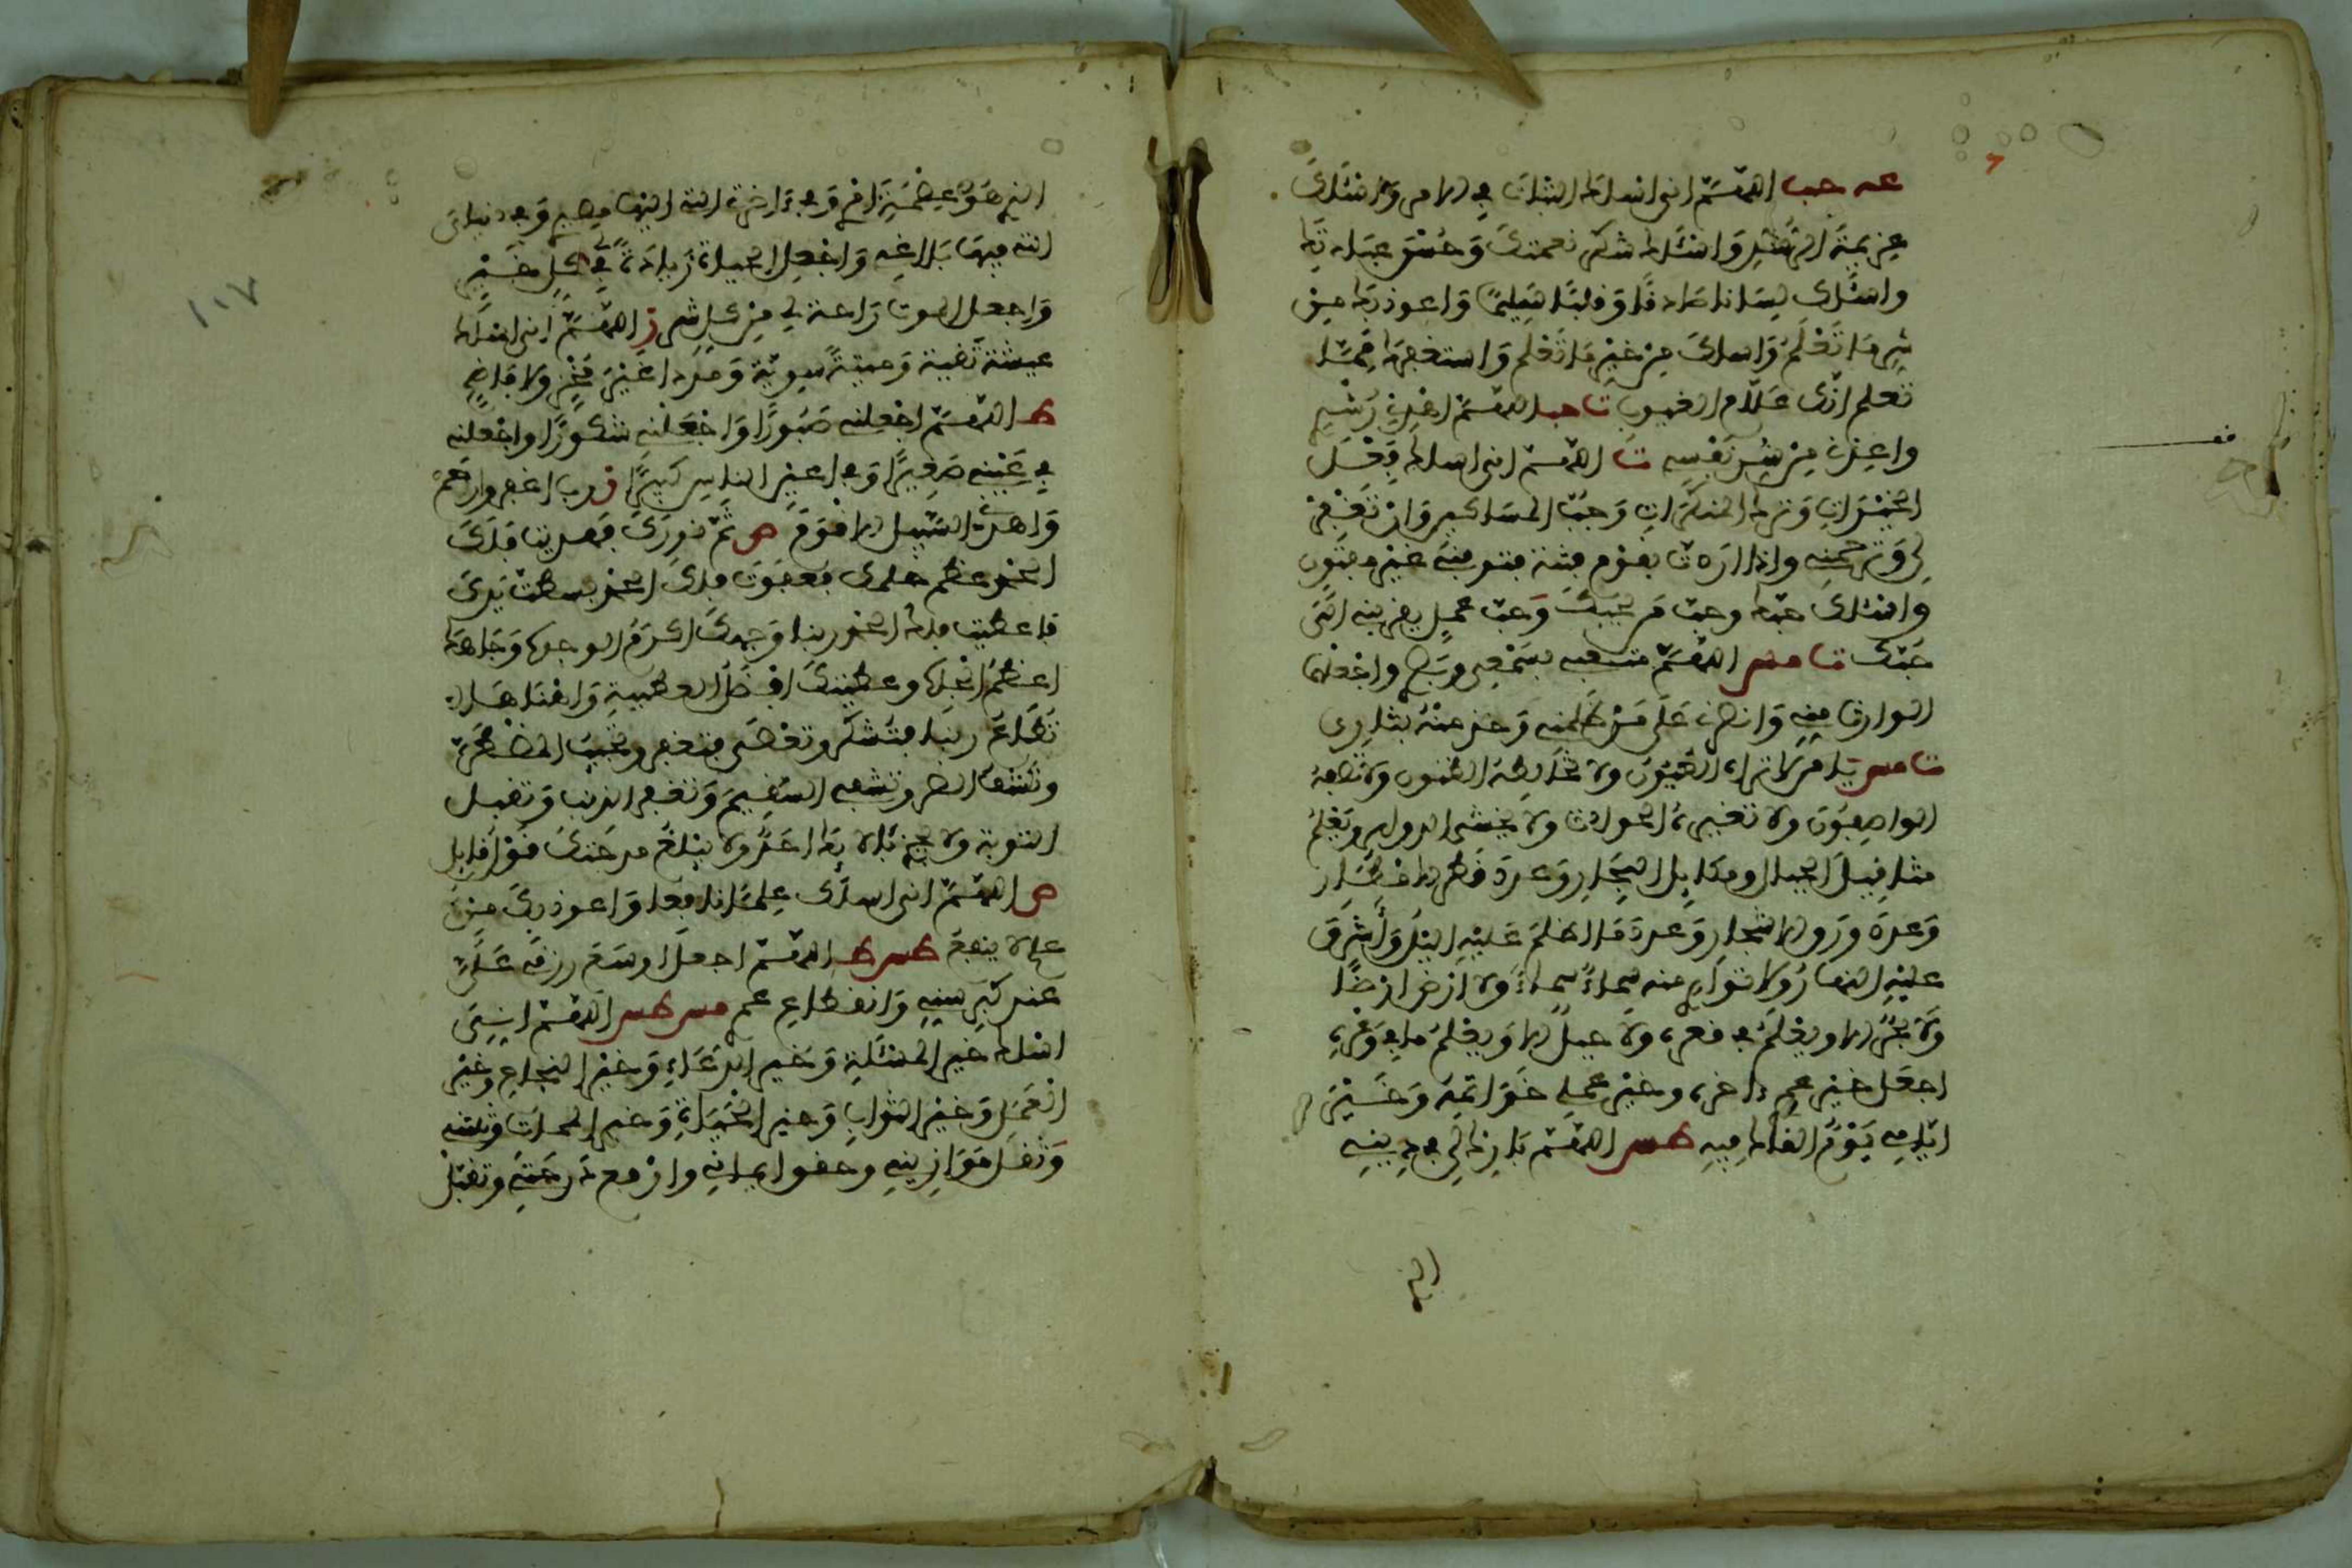 عه حب اللهم اني اسلك الثبات في الامر واسئلك
عزيمة الرشد واسئلك شكر نعمتك وحسن عبادتك
واسئلك لسانا صادقا وقلبا سليما واعوذ بك من
شر ما تعلم واسلك من خير ما تعلم واستغفرك مما
تعلم انك علام الغيوب تا حب اللهم الهمني رشدي
واعذني من شر نفسي تا اللهم اني اسلك فعل
الخيرات وترك المنكرات وحب المساكين وان تغفر
لي وترحمني واذا اردت بقوم فتنة فتوفني غير مفتون
واسئلك حبك وحب من يحبك وحب عمل يقربني الى
حبك تا مس اللهم متعني بسمعي وبصري واجعلهما
الوارث مني وانصرني على من ظلمني وخذ منه بثاري
تا مس يا من لا تراه العيون ولا تخالطه الظنون ولا تصفه
الواصفون ولا تغيره الحوادث ولا يخشى الدوائر ويعلم
مثاقيل الجبال ومكايل البحار وعدد قطر الامطار
وعدد ورق الاشجار وعدد ما اظلم عليه اليل واشرق
عليه النهار ولا تواري منه سماء سماء ولا ارض ارضا
ولا بحر الا ويعلم ما في قعره ولا جبل الا ويعلم ما في وعره
اجعل خير عمري ءاخره وخير عملي خواتمه وخير
ايامي يوم القاك فيه طس اللهم بارك لي في ديني
الذي
الذي هو عصمة امري وفي ءاخرتي التي اليها مصيري وفي دنياي
التي فيها بلاغي واجعل الحياة زيادة لي في كل خير
واجعل الموت راحة لي من كل شر ز اللهم اني اسئلك
عيشة نقية وميتة سوية ومردا غير مخز ولا فاضح
ط اللهم اجعلني صبورا واجعلني شكورا واجعلني
في عيني صغيرا وفي اعين الناس كبيرا ز رب اغفر وارحم
واهدني السبيل الاقوم ص تم نورك فهديت فلك
الحمد عظم حلمك فعفوت فلك الحمد بسطت يدك
فاعطيت فلك الحمد ربنا وجهك اكرم الوجوه وجاهك
اعظم الجاه وعطيتك افضل العطية واهناها
تطاع ربنا فتشكر وتعصى فتغفر وتجيب المضطر
وتكشف الضر وتشفي السقيم وتغفر الذنب وتقبل
التوبة ولا يجزي بالائك احد ولا يبلغ مدحتك قول قايل
ص اللهم اني اسلك علما نافعا واعوذ بك من
علم لا ينفع طس ط اللهم اجعل اوسع رزقك علي
عند كبر سني وانقطاع عمري مس طس اللهم اني
اسلك خير المسئلة وخير الدعاء وخير النجاح وخير
العمل وخير الثواب وخير الحياة وخير الممات وثبتني
وثقل موازيني وحقق ايماني وارفع درجتي وتقبل
١١٧